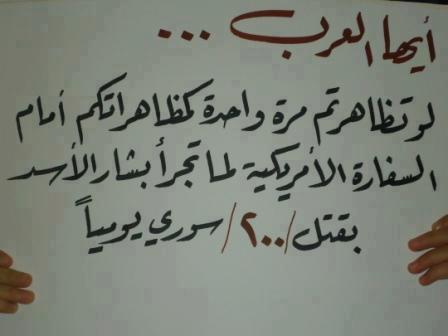 أيها العرب ...
لو تظاهرتم مرة واحدة كمظاهراتكم أمام
السفارة الأمريكية لما تجرأ بشار الأسد
بقتل /٢٠٠/ سوري يومياً